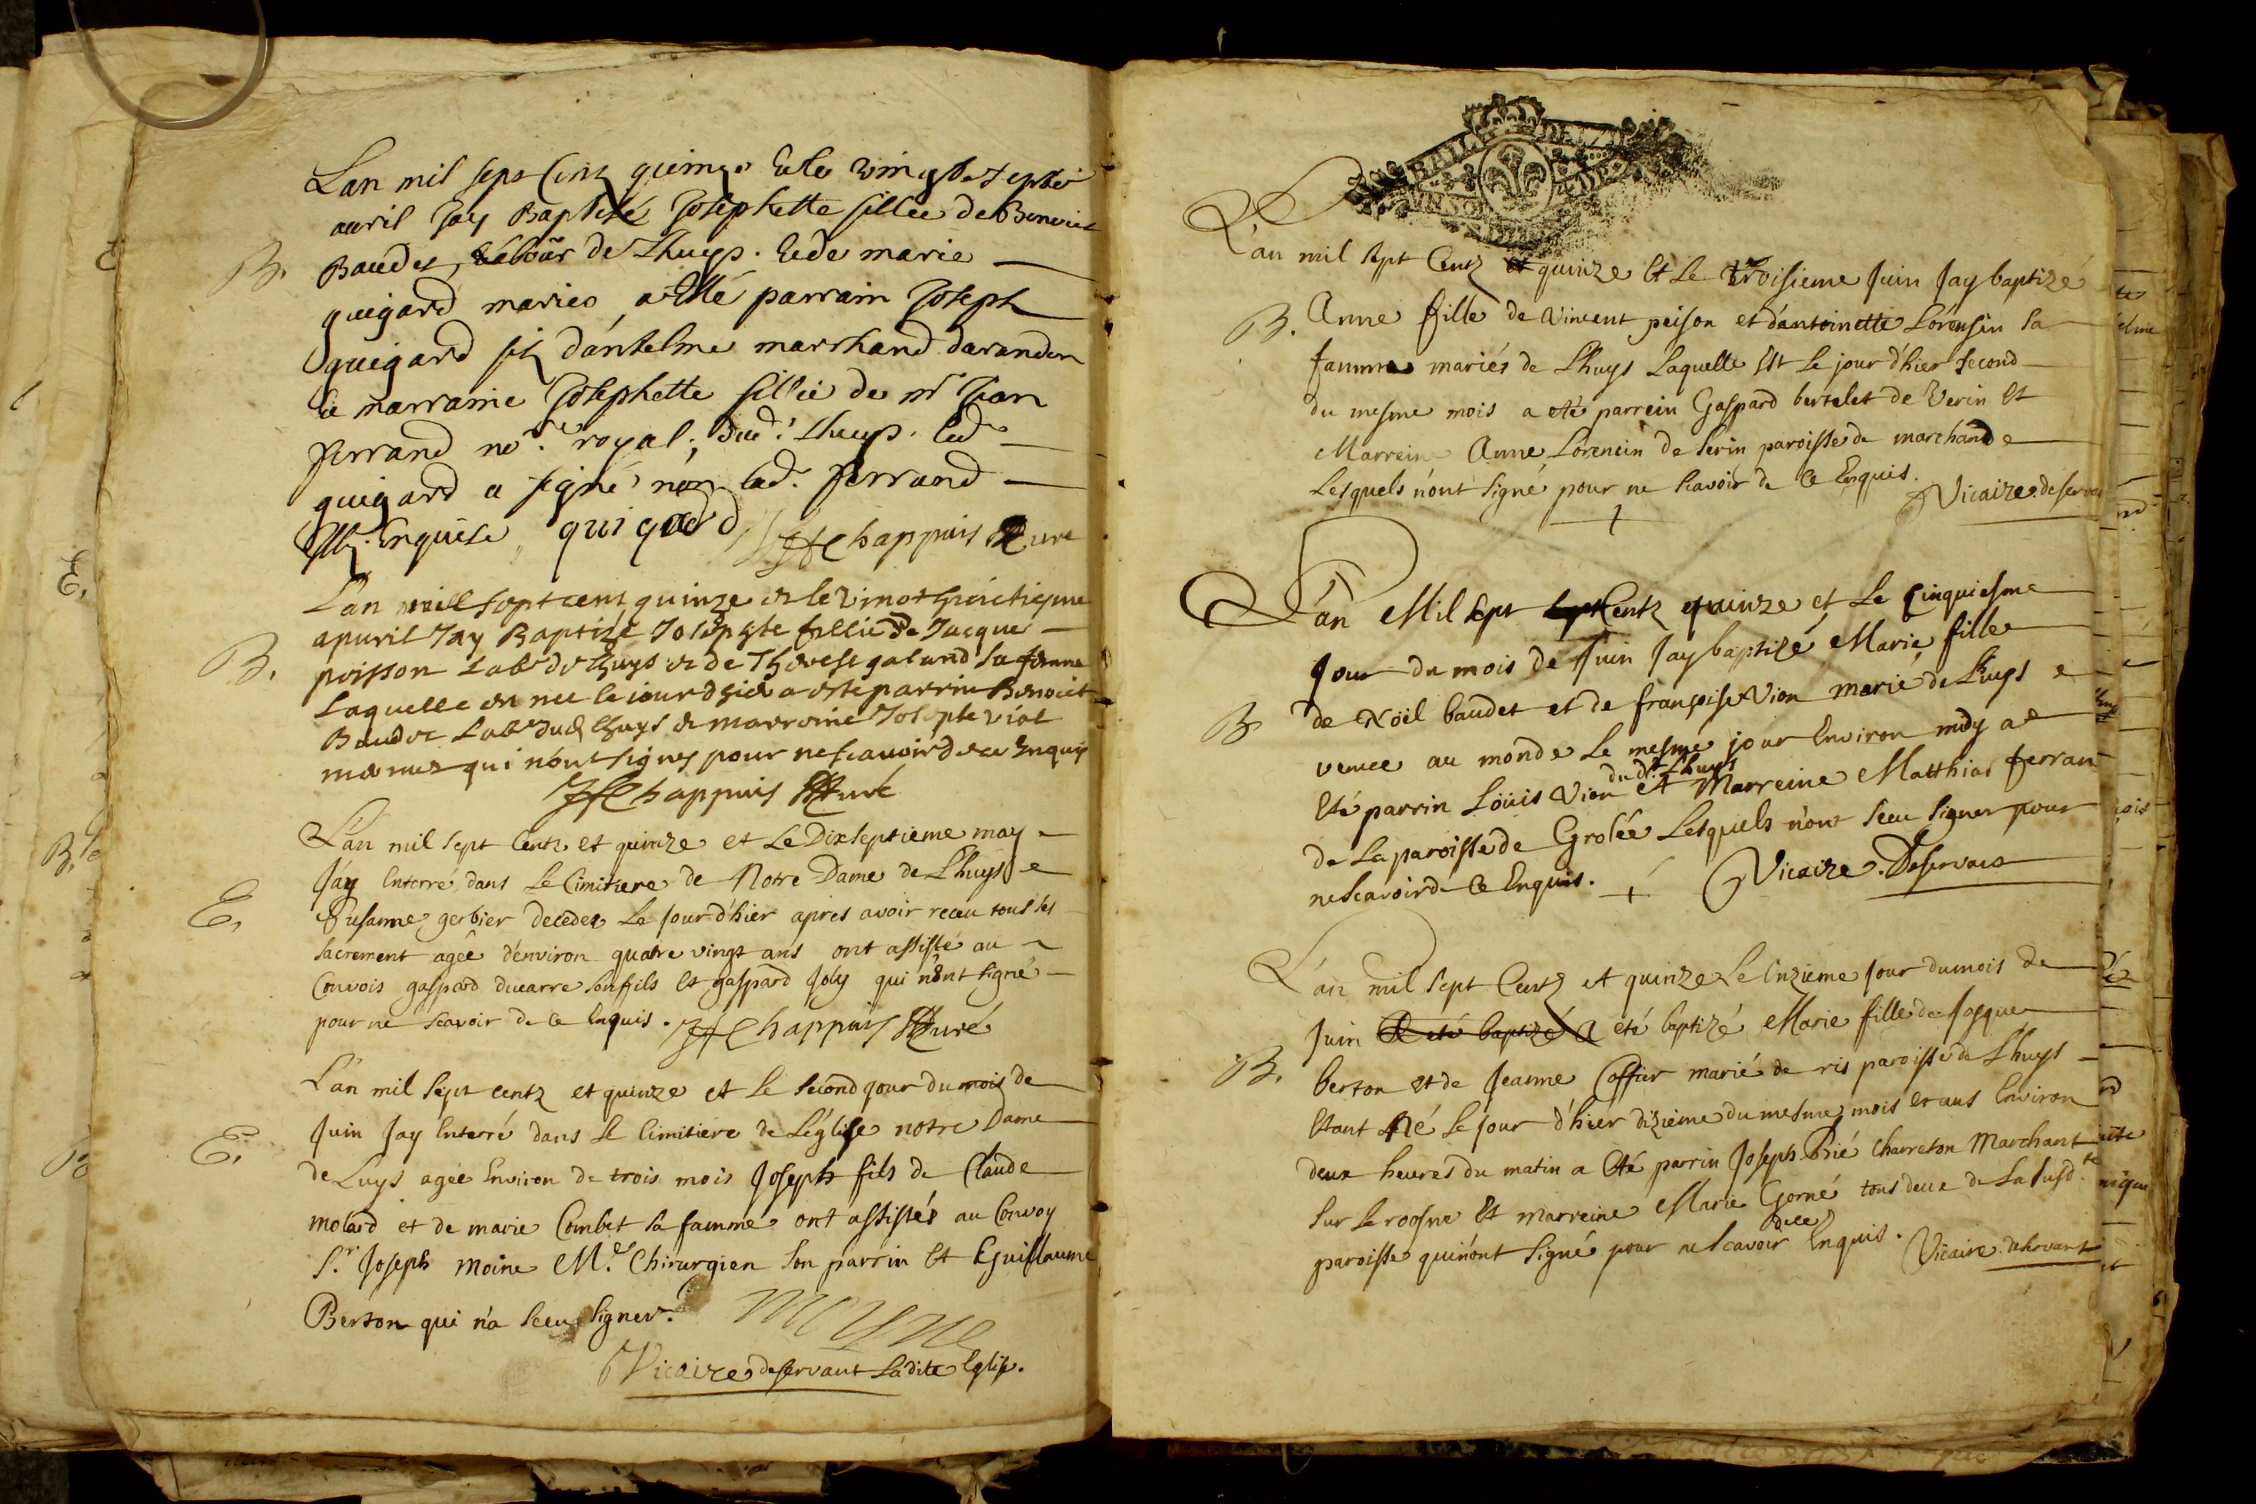 Lan mil sept Cent quinze Et le vingt septie
B.
avril Jay Baptisé Josephette fillie de Benoict
Baudet, labour de Lhuys. Et de marie
guigard mariés, a Esté parrain Joseph
guigard filz d'antelme marchand darandon
Et marraine Josephette fillie de mr Jean
ferrand nore royal, dud. Lhuys. Led.
guigard a signé non lad. ferrand
Enquise quigard Chappuis Curé
L'an mill sept cent quinze et le vingt huictiesme
B.
apvril Jay Baptizé Josephte fillie de Jacque
poisson Labr de Lhuys et de Therese galand sa femme
Laquelle est nee le jour d'hier a esté parrin Benoict
Baudet Labr dud Lhuys et marreine Josephte viol
qui n'ont signes pour ne scavoir de ce Enquis
Chappuis Curé
L'an mil sept Centz et quinze et Le Dixseptieme may
E.
Jay Enterré dans Le Cimitiere de Notre Dame de Lhuys
Susanne gerbier decedee Le Jour d'hier apres avoir receu tous les
sacrement agée d'environ quatre vingt ans ont assisté au
Convois gaspard ducarre son fils Et gaspard Joly qui n'ont signé
pour ne scavoir de ce Enquis. Chappuis Curé
L'an mil sept centz et quinze et le second jour du mois de
E.
Juin Jay Enterré dans le Cimitiere de L'église notre Dame
de Luys agée Environ de trois mois Joseph fils de Claude
molard et de marie Combet sa famme ont assistés au Convoy
Sr. Joseph moine Me. Chirurgien son parrin Et Guillaume
Berton qui n'a sceu signer.
moyne
Vicaire deservant Ladite Eglise.
L'an mil sept Centz et quinze Et Le troisieme Juin Jay baptizé
B.
Anne fille de Vincent peison et d'antoinette Lorensin sa
famme mariés de Lhuys Laquelle Est Le jour d'hier second
du mesme mois a eté parrein Gaspard bertelet de Verin Et
Marreine Anne Lorencin de serin paroisse de marchand
Lesquels n'ont signé pour ne scavoir de Ce Enquis.
Vicaire deserva
L'an Mil sept Centz quinze et Le Cinquiesme
Jour du mois de Juin Jay baptizé Marie fille
B
de Nöel baudet et de françoise Vion marié de Lhuys
venue au monde Le mesme jour Environ midy a
du dt Lhuys
Eté parrin Löuis Vion et Marreine Matthias ferran
de La paroisse de Grolée Lesquels n'ont sceu signer pour
ne scavoir de Ce Enquis. Vicaire Deservant
L'an mil sept Centz et quinze Le Onzieme Jour du mois de
Juin a eté baptizé a eté baptizé Marie fille de Jasque
B.
berton et de Jeanne Coffier marié de ris paroisse de Lhuys
Etant Né le jour d'hier dizieme du mesme mois et ans Environ
deux heures du matin a Eté parrin Joseph Charreton Marchant
sur Le roosne Et marreine Marie Gorné tous deux de La susd.te
dece
paroisse qui n'ont signé pour ne scavoir Enquis. Vicaire deservant